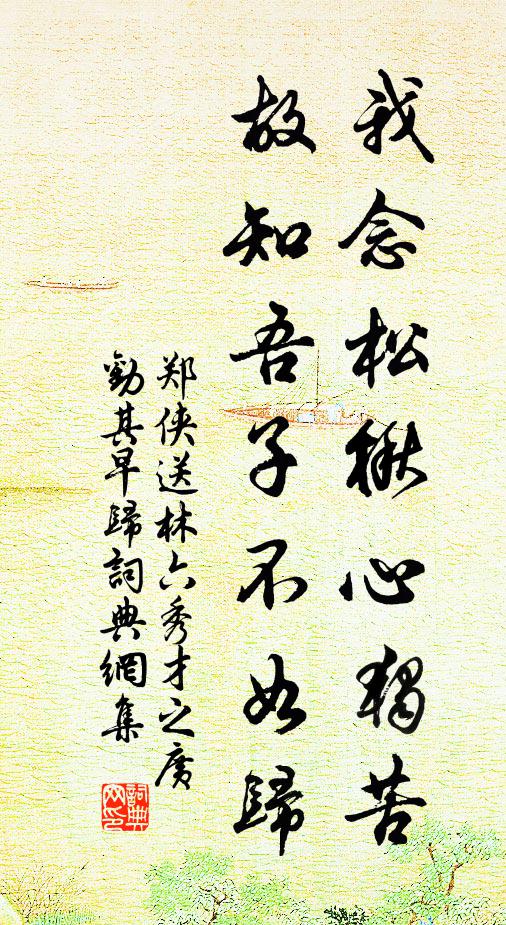 我念松楸心獨苦
故知吾子不如歸
郑侠送林六秀才之广
勸其早歸詞典網集
詞典网印